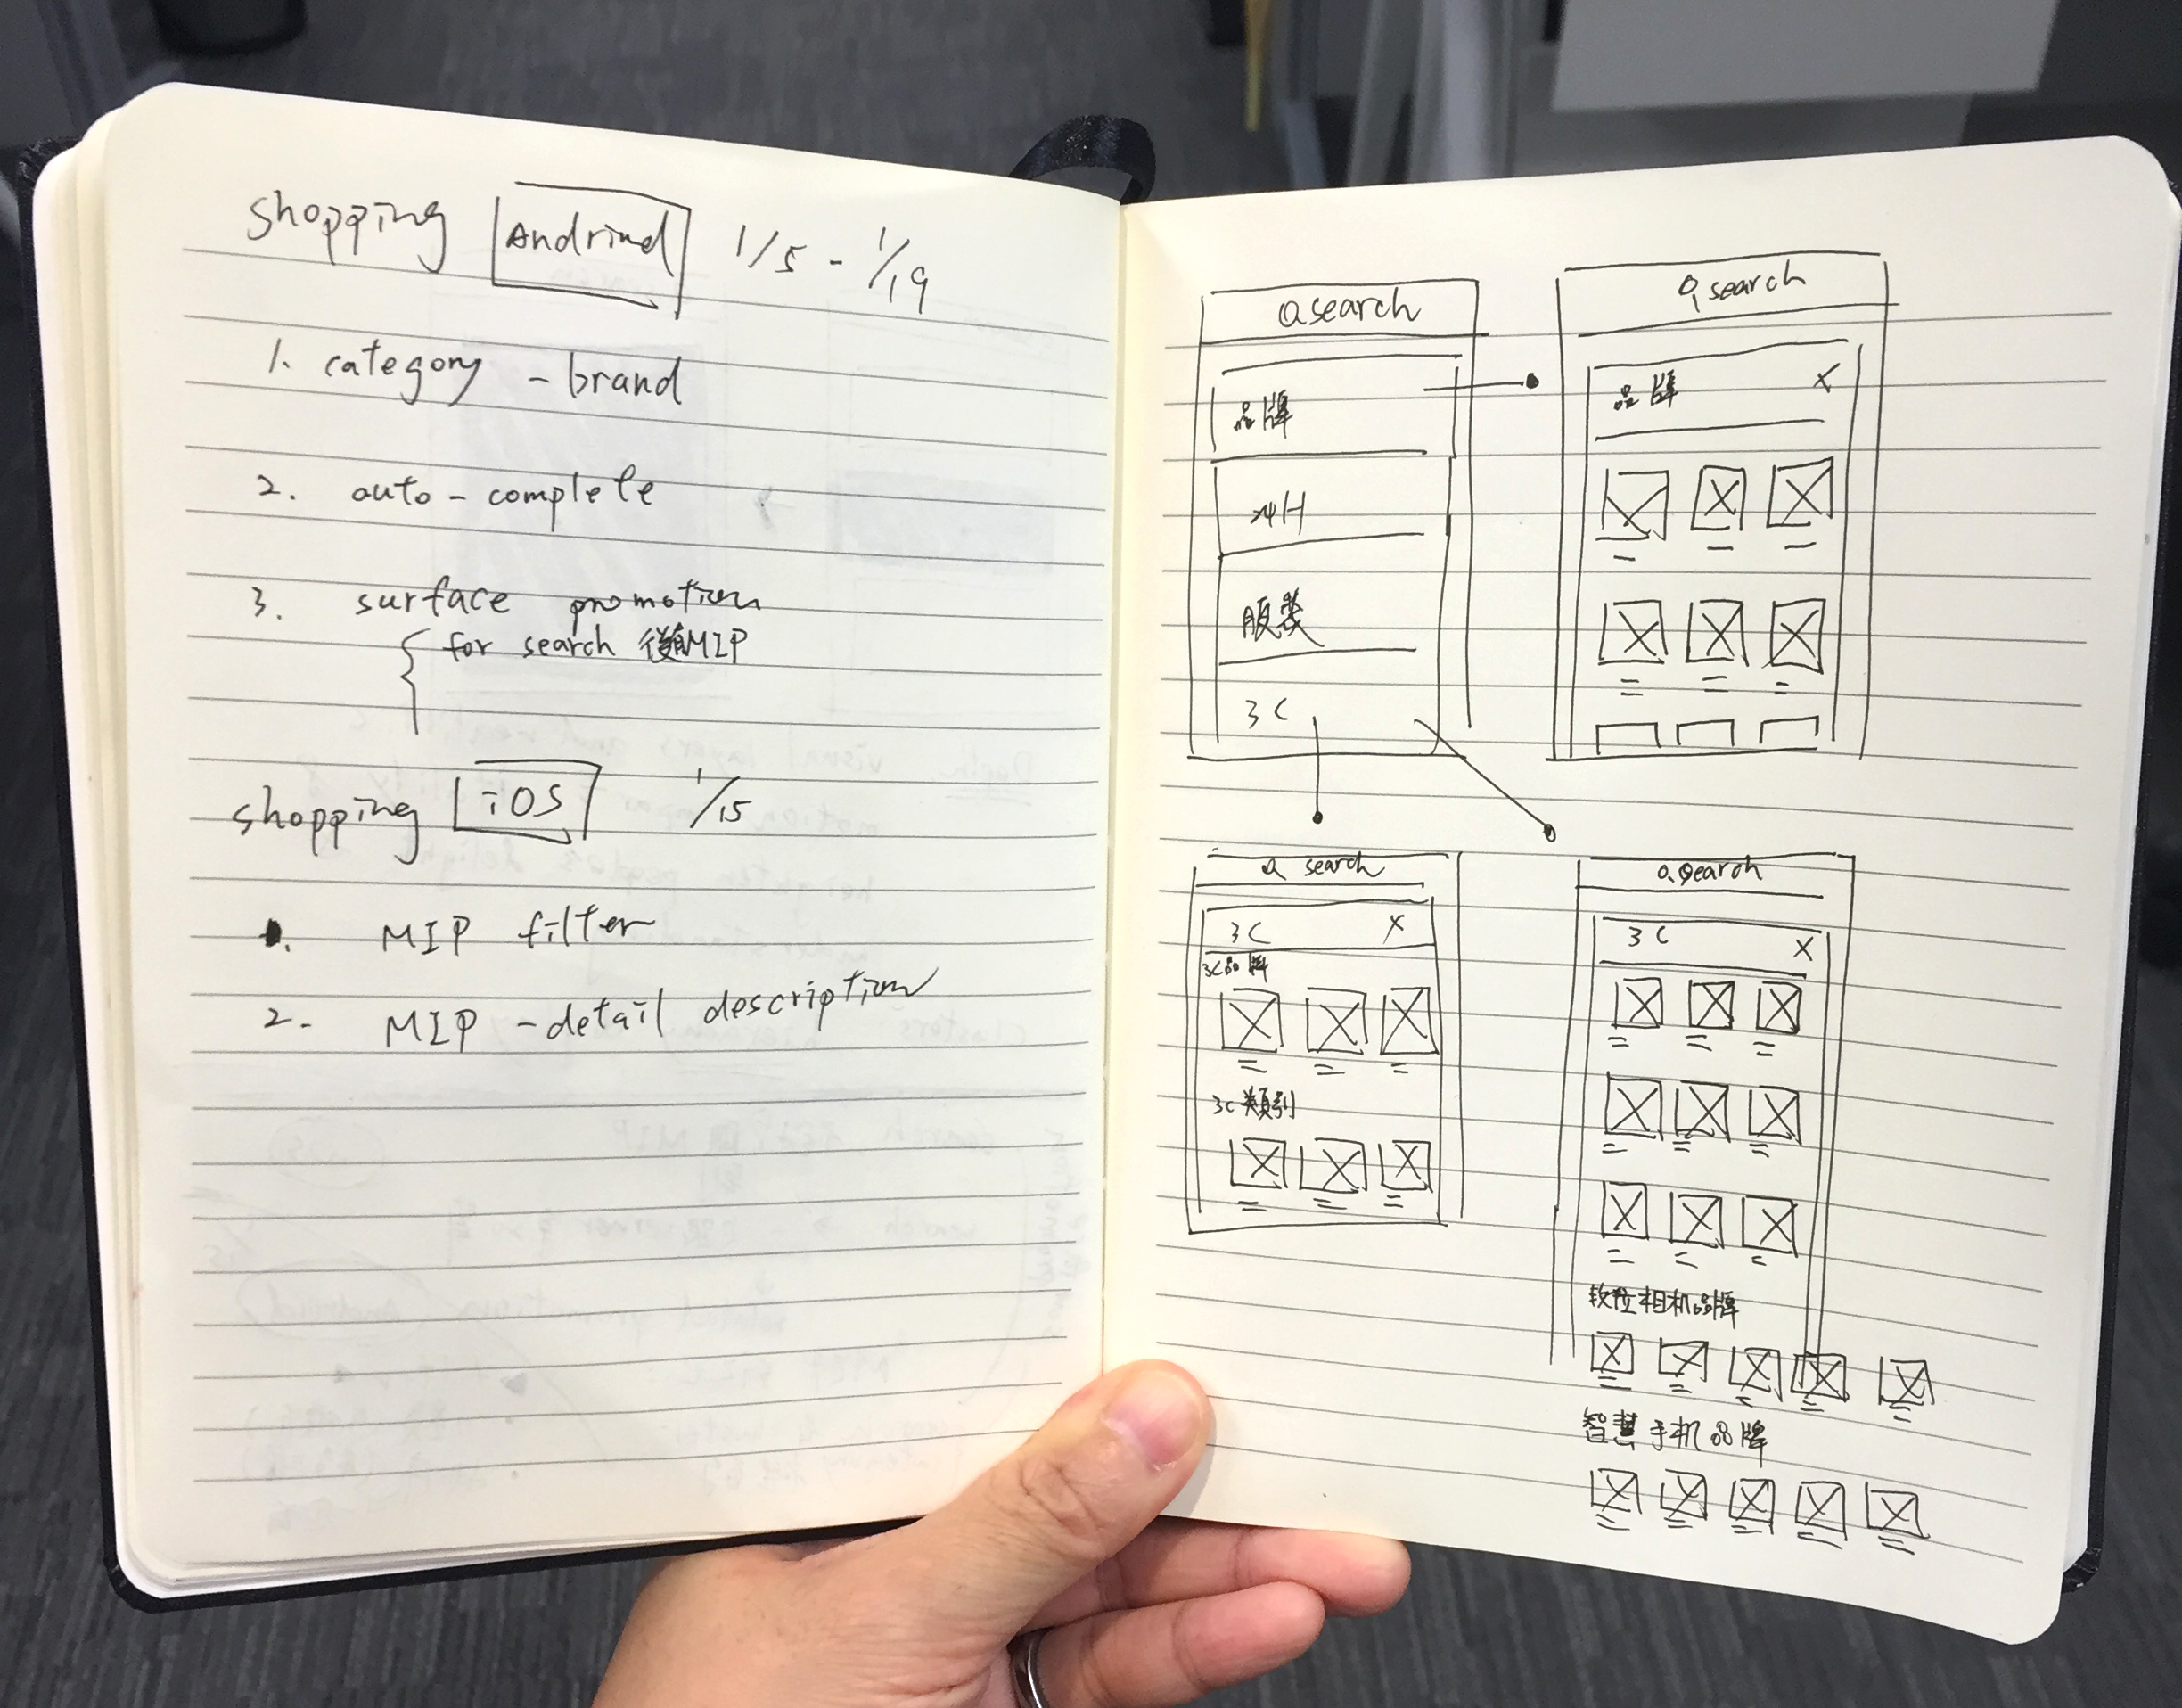 shopping Andriod 1/5 - 1/19
1. category - brand
2. auto - complete
3. surface promotion
for search 後的MIP
shopping iOS 1/15
1. MIP filter
2. MIP - detail description
search
品牌
24H
服裝
3C
search
品牌 X
search
3C X
3C品牌
3C類別
search
3C X
數位相机品牌
智慧手机品牌